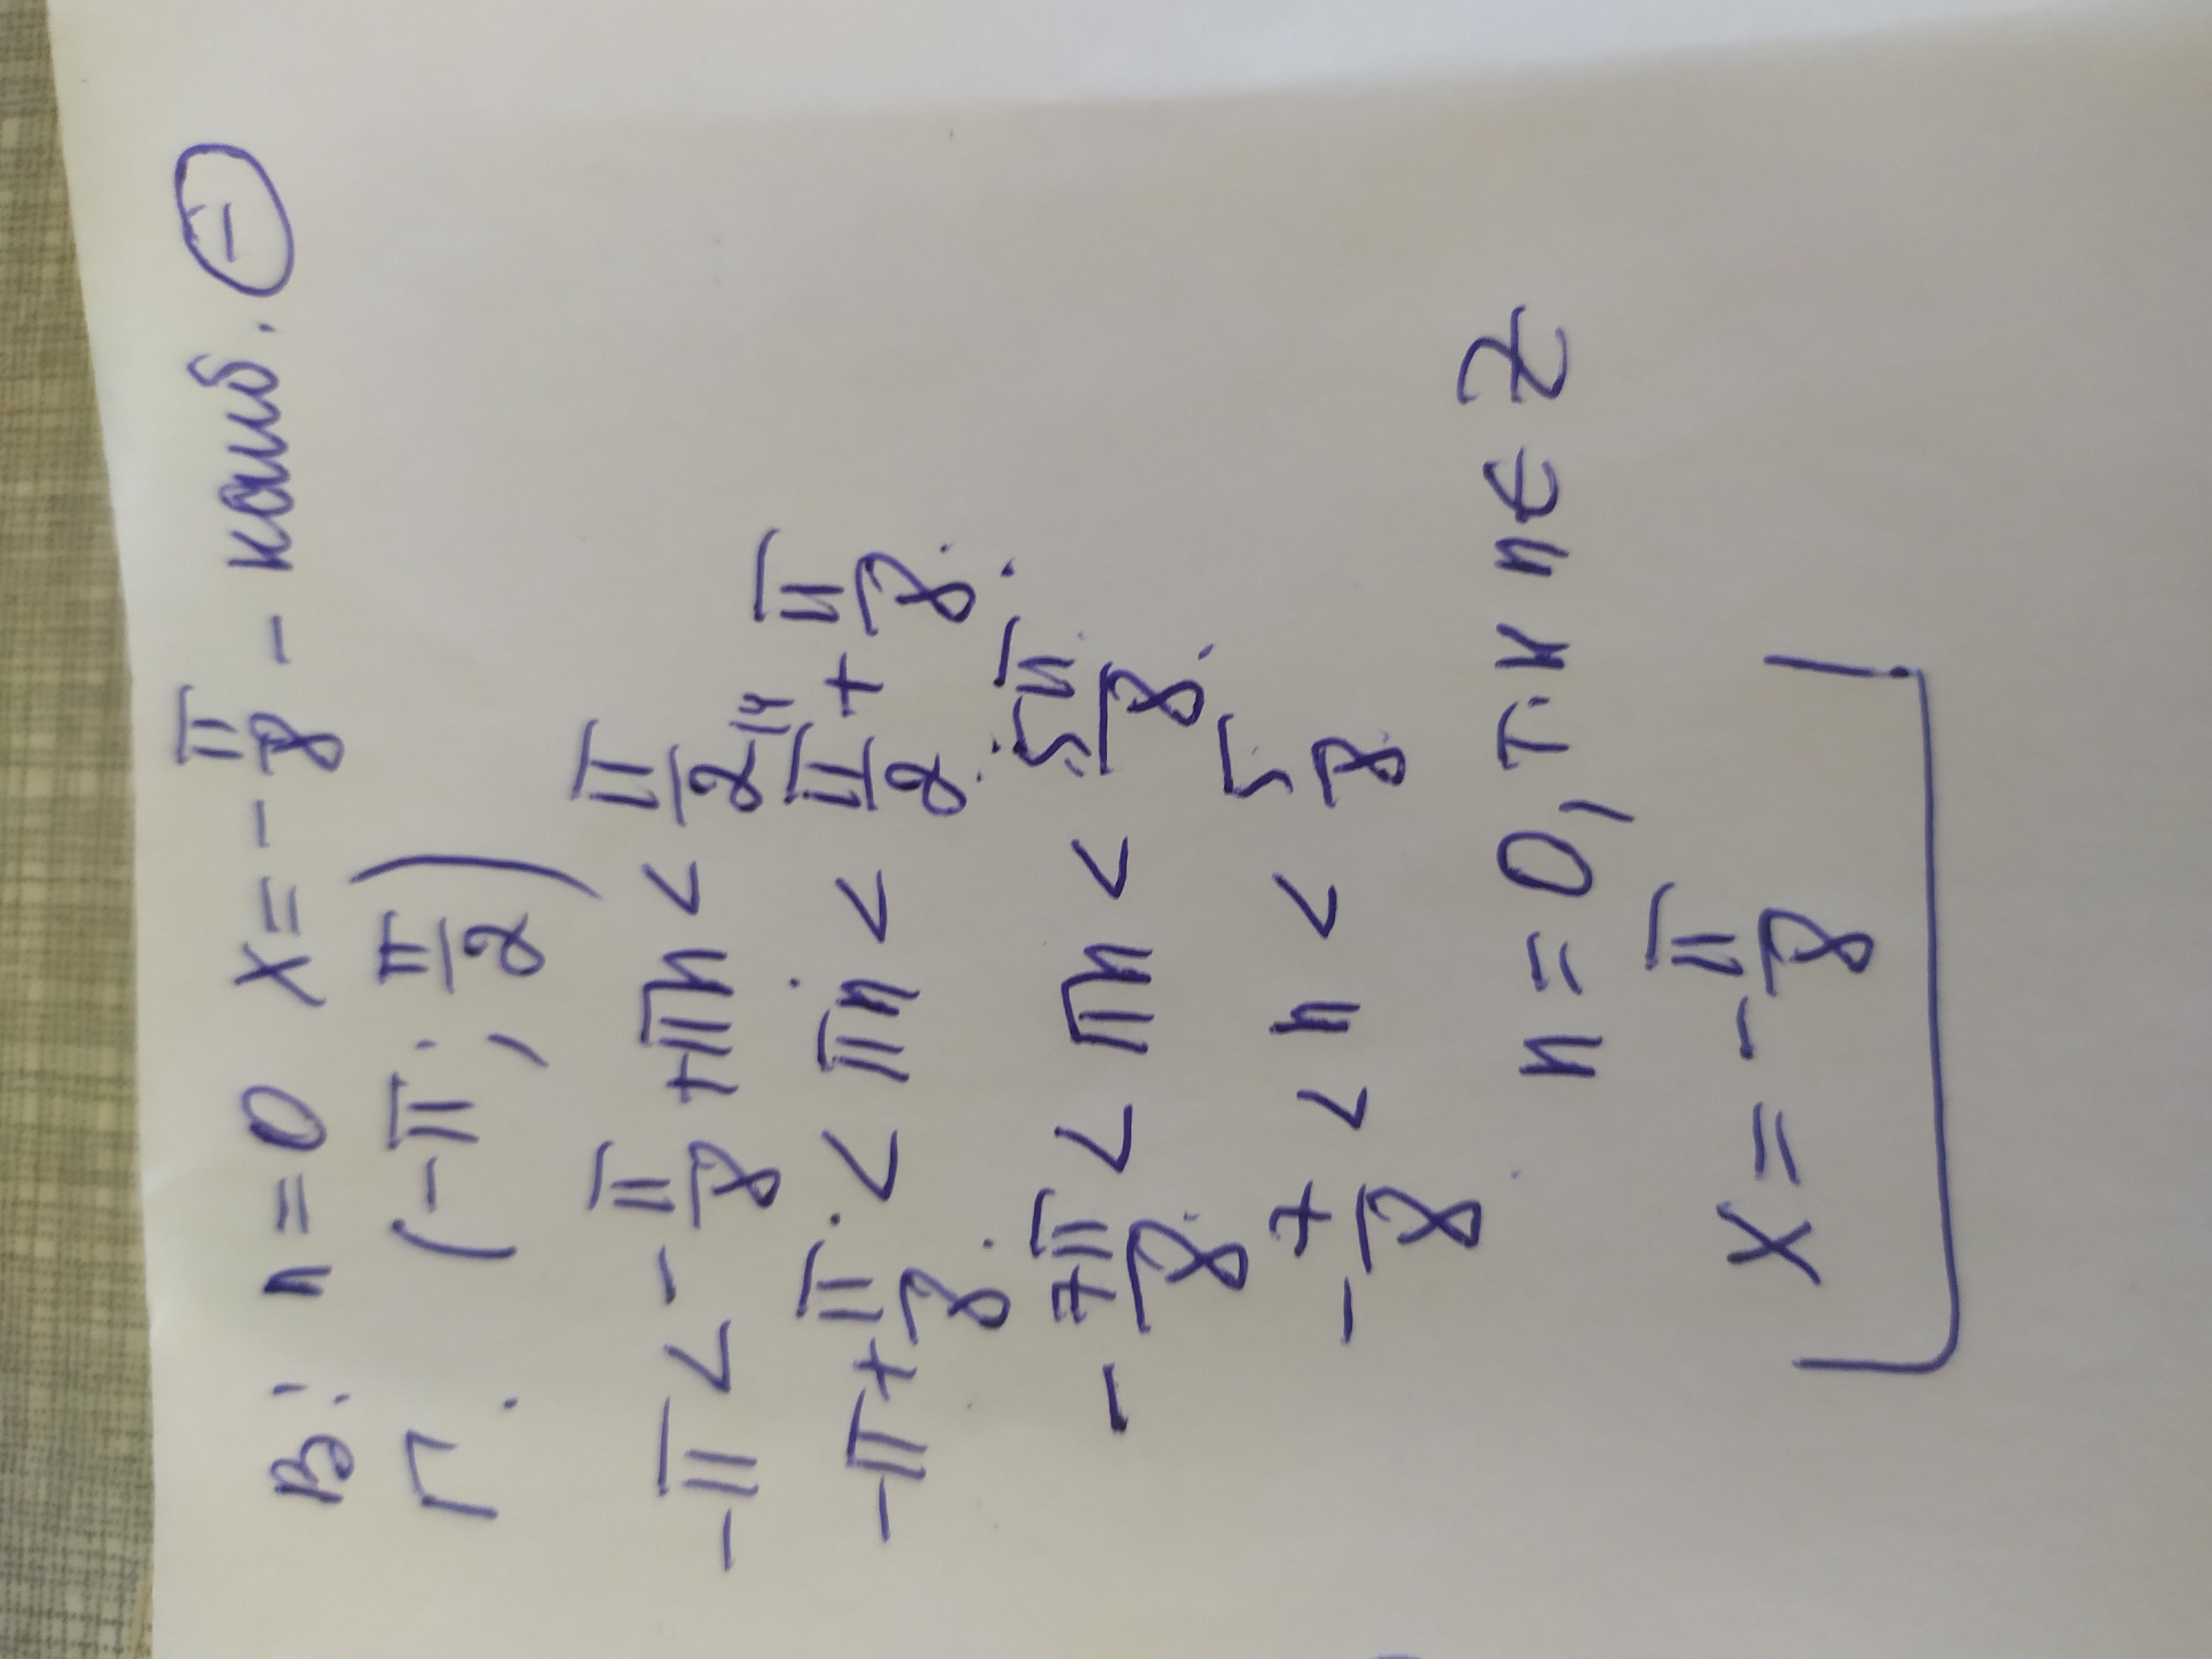 В: n = 0 x = - π/8 - наиб. ⊖
Г. (-π; π/2)
-π < - π/8 + πn < π/2
-π + π/8 < πn < π/2 + π/8
- 7π/8 < πn < 5π/8
- 7/8 < n < 5/8
n = 0, т.к n ∈ Z
x = - π/8